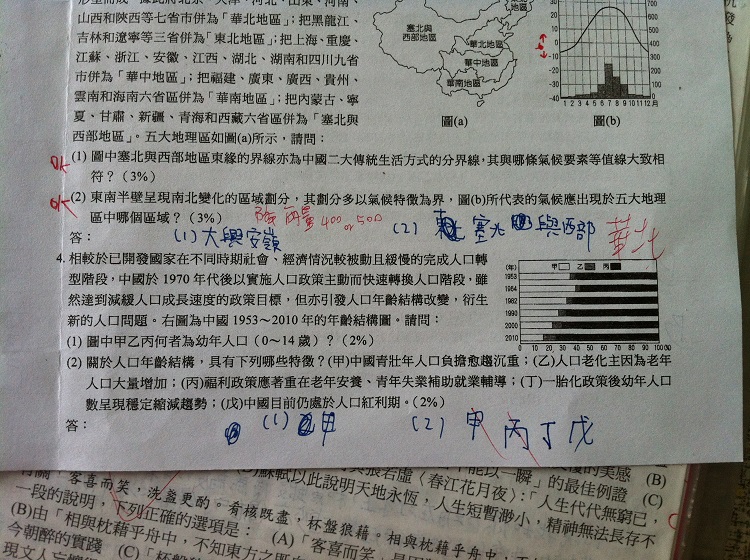 山西和陝西等七省市併為「華北地區」；把黑龍江、
吉林和遼寧等三省併為「東北地區」；把上海、重慶、
江蘇、浙江、安徽、江西、湖北、湖南和四川九省
市併為「華中地區」；把福建、廣東、廣西、貴州、
雲南和海南六省區併為「華南地區」；把內蒙古、寧
夏、甘肅、新疆、青海和西藏六省區併為「塞北與
西部地區」。五大地理區如圖(a)所示，請問：
塞北與
西部地區
華北地區
華中地區
華南地區
圖(a)
20
10
0
-10
-20
-30
-40
700
600
500
400
300
200
100
0
1 2 3 4 5 6 7 8 9 10 11 12月
圖(b)
(1) 圖中塞北與西部地區東緣的界線亦為中國二大傳統生活方式的分界線，其與哪條氣候要素等值線大致相
符？（3%）
(2) 東南半壁呈現南北變化的區域劃分，其劃分多以氣候特徵為界，圖(b)所代表的氣候應出現於五大地理
區中哪個區域？（3%）
雨量400 or 500
答：
(1) 大興安嶺
(2) 塞北與西部
華北
4. 相較於已開發國家在不同時期社會、經濟情況較被動且緩慢的完成人口轉
型階段，中國於 1970 年代後以實施人口政策主動而快速轉換人口階段，雖
然達到減緩人口成長速度的政策目標，但亦引發人口年齡結構改變，衍生
新的人口問題。右圖為中國 1953～2010 年的年齡結構圖。請問：
(年)
甲 乙 丙
1953
1964
1982
1990
2000
2010
0 20 40 60 80 100(%)
(1) 圖中甲乙丙何者為幼年人口（0～14 歲）？（2%）
(2) 關於人口年齡結構，具有下列哪些特徵？(甲)中國青壯年人口負擔愈趨沉重；(乙)人口老化主因為老年
人口大量增加；(丙)福利政策應著重在老年安養、青年失業補助就業輔導；(丁)一胎化政策後幼年人口
數呈現穩定縮減趨勢；(戊)中國目前仍處於人口紅利期。（2%）
答：
(1) 甲
(2) 甲 丙 丁 戊
「客喜而笑，洗盞更酌。肴核既盡，杯盤狼藉。相與枕藉乎舟中，
一段的說明，下列正確的選項是：
(B)由「相與枕藉乎舟中，不知東方之既
今朝醉的實踐
(A)「客喜而笑」
蘇軾以此說明天地永恆，人生短暫渺小，精神無法長存
張若虛〈春江花月夜〉：「人生代代無窮已，
能以一瞬」的最佳例證
的美感
(B)
(C)